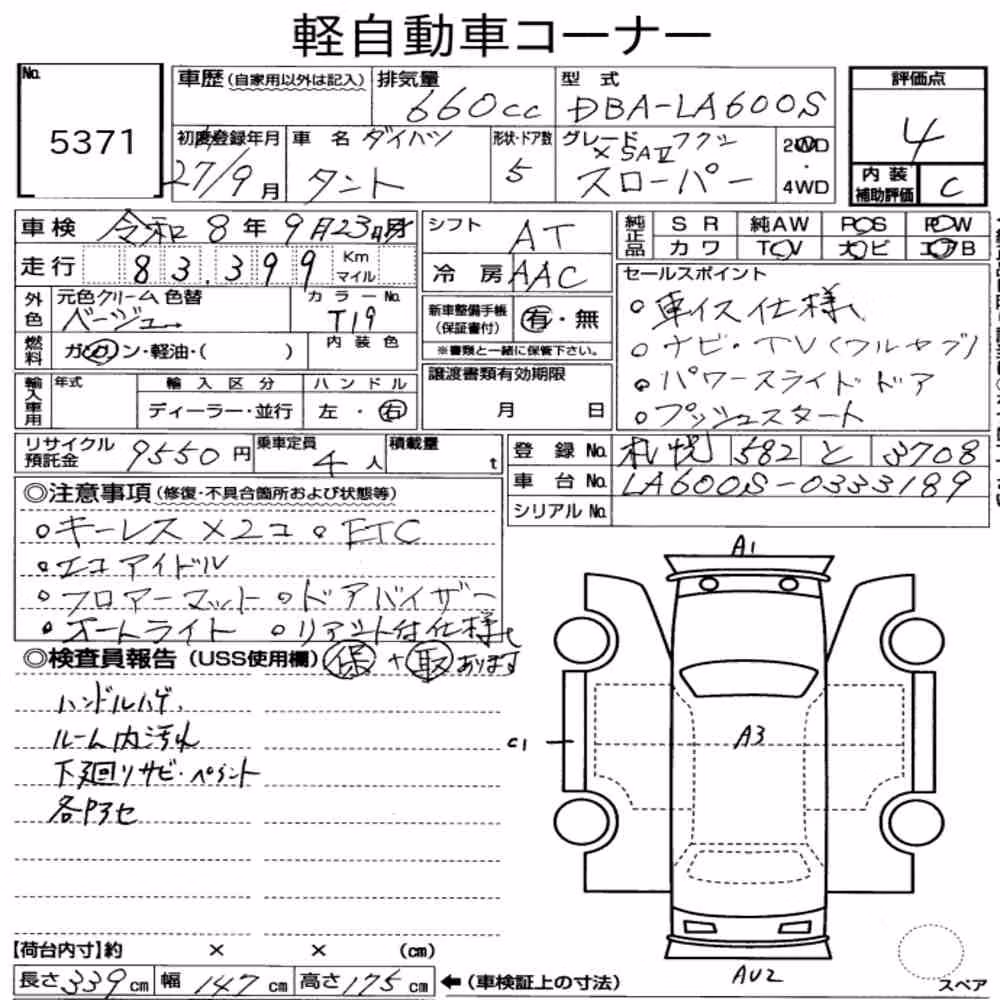 軽自動車コーナー
No. 5371
車歴 (自家用以外は記入) 排気量 660cc 型式 DBA-LA600S
初度登録年月 27/9月 車名 ダイハツ タント 形状・ドア数 5 グレード スローパー 2WD・4WD
評価点 4
内装補助評価 C
車検 令和8年9月23日
走行 83,399 Km マイル
外色 元色クリーム 色替 ベージュ カラーNo. T19
燃料 ガソリン・軽油・( ) 内装色
輸入車用 年式 輸入区分 ディーラー・並行 ハンドル 左・右
シフト AT
冷房 AAC
新車整備手帳 (保証書付) 有・無
※書類と一緒に保管下さい。
譲渡書類有効期限 月 日
純正品 SR 純AW PS PW
カワ TV ナビ エアB
セールスポイント
○車イス仕様
○ナビ・TV(フルセグ)
○パワースライドドア
○プッシュスタート
リサイクル預託金 9550円 乗車定員 4人 積載量 t
登録No. 札幌 582 と 3708
車台No. LA600S-0333189
シリアルNo.
◎注意事項 (修復・不具合箇所および状態等)
○キーレス×2コ ○ETC
○エコアイドル
○フロアーマット ○ドアバイザー
○オートライト ○リアシート付仕様
◎検査員報告 (USS使用欄) 保+取あります
ハンドルハゲ、
ルーム内汚れ
下廻りサビ・ペイント
A1
C1
A3
AU2
【荷台内寸】約 × × (cm)
長さ339cm 幅147cm 高さ175cm ←(車検証上の寸法)
スペア